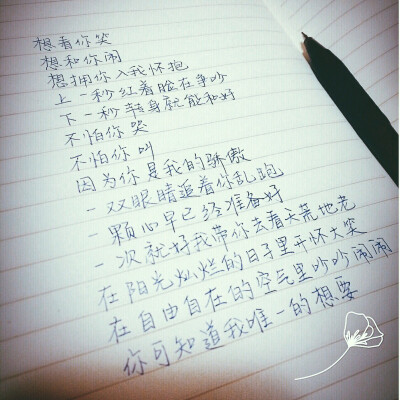 想看你笑
想和你闹
想拥你入我怀抱
上一秒红着脸在争吵
下一秒转身就能和好
不怕你哭
不怕你叫
因为你是我的骄傲
一双眼睛追着你乱跑
一颗心早已经准备好
一次就好我带你去看天荒地老
在阳光灿烂的日子里开怀大笑
在自由自在的空气里吵吵闹闹
你可知道我唯一的想要